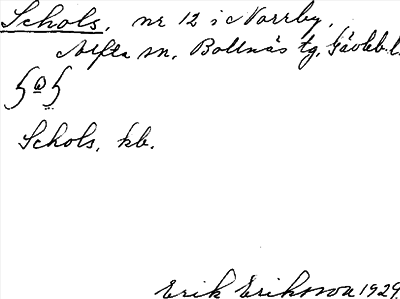 Schols, nr 12 i Norrby,
Alfta sn, Bollnäs tg, Gävleb. l.
Schols, kb.
Erik Eriksson 1929.